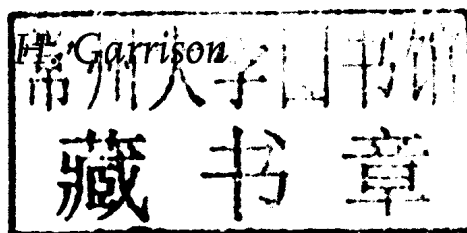 H. Garrison
常州大学图书馆
藏书章